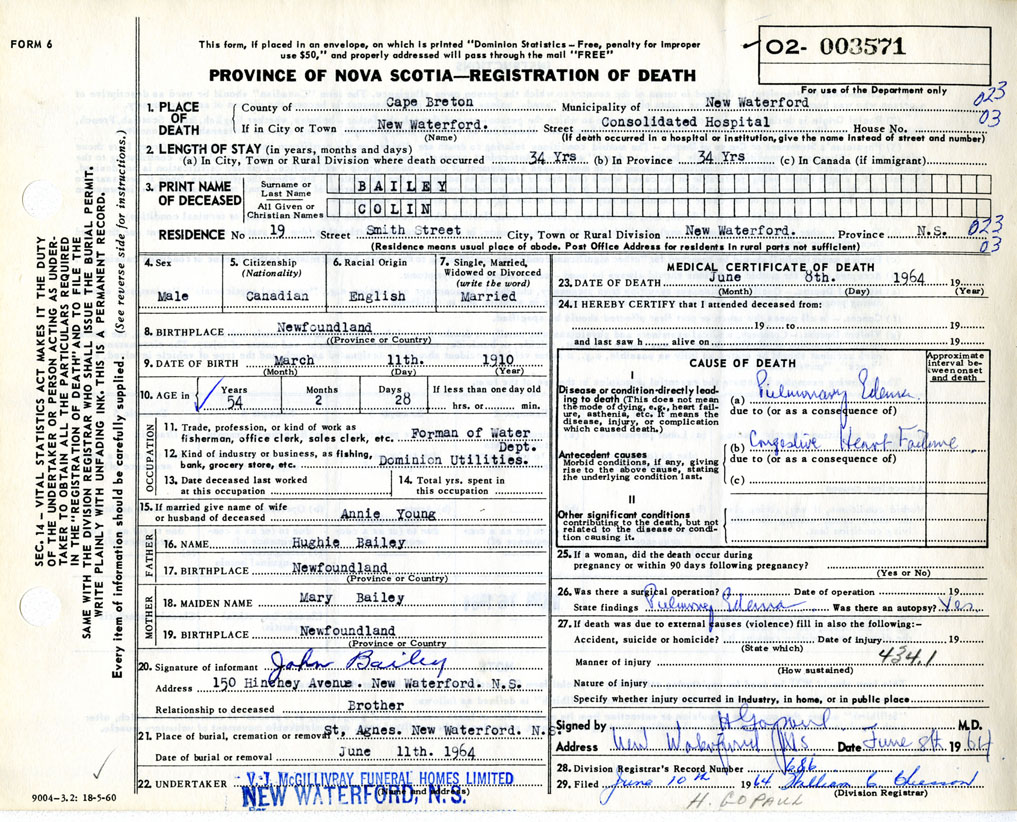 FORM 6
This form, if placed in an envelope, on which is printed "Dominion Statistics – Free, penalty for improper
use $50," and properly addressed will pass through the mail "FREE"
PROVINCE OF NOVA SCOTIA—REGISTRATION OF DEATH
02- 003571
For use of the Department only
023
03
1. PLACE OF DEATH
County of Cape Breton Municipality of New Waterford
If in City or Town New Waterford. Street Consolidated Hospital House No.
(Name) (If death occurred in a hospital or institution, give the name instead of street and number)
2. LENGTH OF STAY (in years, months and days)
(a) In City, Town or Rural Division where death occurred 34 Yrs (b) In Province 34 Yrs (c) In Canada (if immigrant)
3. PRINT NAME OF DECEASED
Surname or Last Name BAILEY
All Given or Christian Names COLIN
RESIDENCE No 19 Street Smith Street City, Town or Rural Division New Waterford. Province N.S.
023
03
(Residence means usual place of abode. Post Office Address for residents in rural parts not sufficient)
4. Sex
Male
5. Citizenship
(Nationality)
Canadian
6. Racial Origin
English
7. Single, Married,
Widowed or Divorced
(write the word)
Married
8. BIRTHPLACE Newfoundland
((Province or Country)
9. DATE OF BIRTH March 11th. 1910
(Month) (Day) (Year)
10. AGE in
Years 54
Months 2
Days 28
If less than one day old
hrs. or min.
OCCUPATION
11. Trade, profession, or kind of work as
fisherman, office clerk, sales clerk, etc. Forman of Water
Dept.
12. Kind of industry or business, as fishing,
bank, grocery store, etc. Dominion Utilities.
13. Date deceased last worked
at this occupation
14. Total yrs. spent in
this occupation
15. If married give name of wife
or husband of deceased Annie Young
FATHER
16. NAME Hughie Bailey
17. BIRTHPLACE Newfoundland
(Province or Country)
MOTHER
18. MAIDEN NAME Mary Bailey
19. BIRTHPLACE Newfoundland
(Province or Country
20. Signature of informant John Bailey
Address 150 Hinchey Avenue. New Waterford. N.S.
Relationship to deceased Brother
21. Place of burial, cremation or removal St, Agnes. New Waterford. N.S.
Date of burial or removal June 11th. 1964
22. UNDERTAKER V. J. McGILLIVRAY FUNERAL HOMES LIMITED
(Name and address)
NEW WATERFORD, N. S.
9004-3.2: 18-5-60
MEDICAL CERTIFICATE OF DEATH
23. DATE OF DEATH June 8th. 1964 19
(Month) (Day) (Year)
24. I HEREBY CERTIFY that I attended deceased from:
19 to 19
and last saw h alive on 19
CAUSE OF DEATH
Approximate
interval be-
tween onset
and death
I
Disease or condition directly lead-
ing to death (This does not mean
the mode of dying, e.g., heart fail-
ure, asthenia, etc. It means the
disease, injury, or complication
which caused death.)
(a) Pulmonary Edema
due to (or as a consequence of)
Antecedent causes
Morbid conditions, if any, giving
rise to the above cause, stating
the underlying condition last.
(b) Congestive Heart Failure
due to (or as a consequence of)
(c)
II
Other significant conditions
contributing to the death, but not
related to the disease or condi-
tion causing it.
25. If a woman, did the death occur during
pregnancy or within 90 days following pregnancy?
(Yes or No)
26. Was there a surgical operation? Date of operation 19
State findings Pulmonary Edema Was there an autopsy? Yes
27. If death was due to external causes (violence) fill in also the following:-
Accident, suicide or homicide? Date of injury 19
(State which)
434.1
Manner of injury
(How sustained)
Nature of injury
Specify whether injury occurred in industry, in home, or in public place
Signed by H Gopaul M.D.
Address New Waterford NS Date June 8th 1964
28. Division Registrar's Record Number 686
29. Filed June 10th 1964 William C Chiasson
(Division Registrar)
H. GOPAUL
SEC. 14 – VITAL STATISTICS ACT MAKES IT THE DUTY
OF THE UNDERTAKER OR PERSON ACTING AS UNDER-
TAKER TO OBTAIN ALL THE PARTICULARS REQUIRED
IN THE "REGISTRATION OF DEATH" AND TO FILE THE
SAME WITH THE DIVISION REGISTRAR WHO SHALL ISSUE THE BURIAL PERMIT.
WRITE PLAINLY WITH UNFADING INK. THIS IS A PERMANENT RECORD.
Every item of information should be carefully supplied. (See reverse side for instructions.)